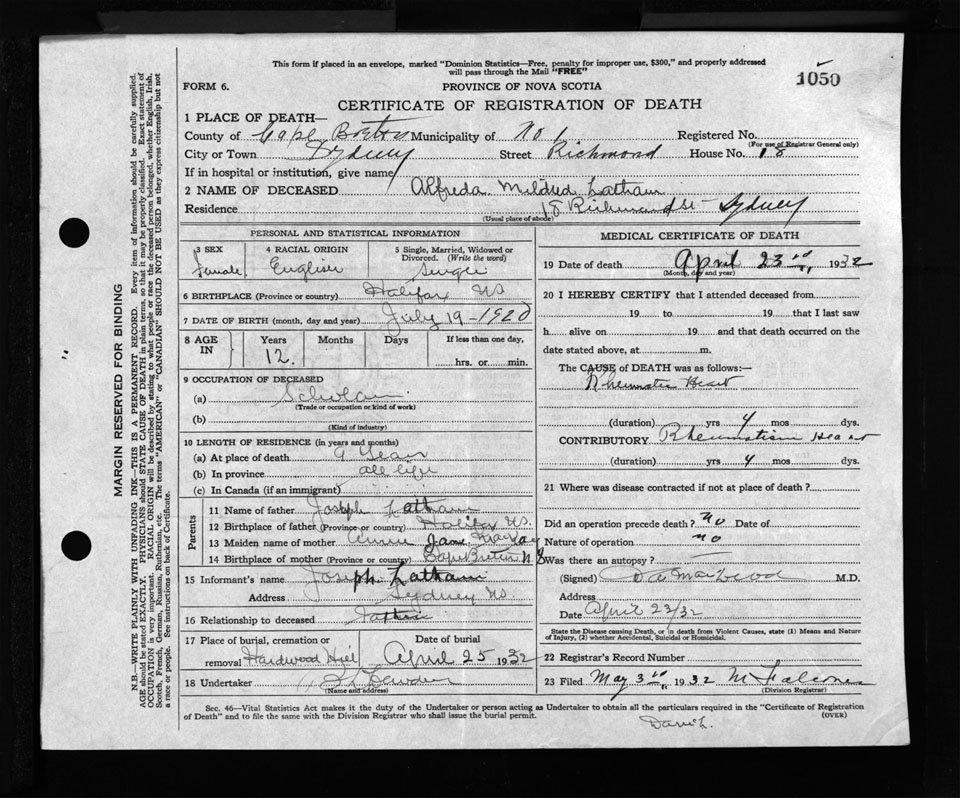 This form if placed in an envelope, marked "Dominion Statistics—Free, penalty for improper use, $300," and properly addressed
will pass through the Mail "FREE"
1050
FORM 6.
PROVINCE OF NOVA SCOTIA
CERTIFICATE OF REGISTRATION OF DEATH
1 PLACE OF DEATH—
County of Cape Breton Municipality of No 1 Registered No.
(For use of Registrar General only)
City or Town Sydney Street Richmond House No. 18
If in hospital or institution, give name
2 NAME OF DECEASED Alfreda Mildred Latham
Residence 18 Richmond St - Sydney
(Usual place of abode)
PERSONAL AND STATISTICAL INFORMATION
3 SEX 4 RACIAL ORIGIN 5 Single, Married, Widowed or
Divorced. (Write the word)
Female English Single
6 BIRTHPLACE (Province or country) Halifax NS
7 DATE OF BIRTH (month, day and year) July 19-1920
8 AGE IN Years Months Days If less than one day,
12. hrs. or min.
9 OCCUPATION OF DECEASED
(a) Scholar
(Trade or occupation or kind of work)
(b)
(Kind of industry)
10 LENGTH OF RESIDENCE (in years and months)
(a) At place of death 9 Years
(b) In province all life
(c) In Canada (if an immigrant)
Parents
11 Name of father Joseph Latham
12 Birthplace of father (Province or country) Halifax NS.
13 Maiden name of mother Annie Jane
14 Birthplace of mother (Province or country) Cape Breton N S
15 Informant's name Joseph Latham
Address Sydney NS.
16 Relationship to deceased Father
17 Place of burial, cremation or Date of burial
removal Hardwood Hill April 25 1932
18 Undertaker
(Name and address)
MEDICAL CERTIFICATE OF DEATH
19 Date of death April 23 1932
(Month, day and year)
20 I HEREBY CERTIFY that I attended deceased from
19 to 19 that I last saw
h alive on 19 and that death occurred on the
date stated above, at m.
The CAUSE of DEATH was as follows:—
Rheumatic Heart
(duration) yrs 4 mos dys.
CONTRIBUTORY Rheumatism Heart
(duration) yrs 4 mos dys.
21 Where was disease contracted if not at place of death?
Did an operation precede death? no Date of
Nature of operation no
Was there an autopsy?
(Signed) M.D.
Address
Date April 23/32
State the Disease causing Death, or in death from Violent Causes, state (1) Means and Nature
of Injury, (2) whether Accidental, Suicidal or Homicidal.
22 Registrar's Record Number
23 Filed May 3 1932
(Division Registrar)
Sec. 46—Vital Statistics Act makes it the duty of the Undertaker or person acting as Undertaker to obtain all the particulars required in the "Certificate of Registration
of Death" and to file the same with the Division Registrar who shall issue the burial permit. (OVER)
MARGIN RESERVED FOR BINDING
N.B.—WRITE PLAINLY WITH UNFADING INK—THIS IS A PERMANENT RECORD. Every item of information should be carefully supplied.
AGE should be stated EXACTLY. PHYSICIANS should STATE CAUSE OF DEATH in plain terms, so that it may be properly classified. Exact statement of
OCCUPATION is very important. RACIAL ORIGIN will be described by stating to what people or race the deceased person belonged, whether English, Irish,
Scotch, French, German, Russian, Ruthenian, etc. The terms "AMERICAN" or "CANADIAN" SHOULD NOT BE USED as they express citizenship but not
a race or people. See instructions on back of Certificate.